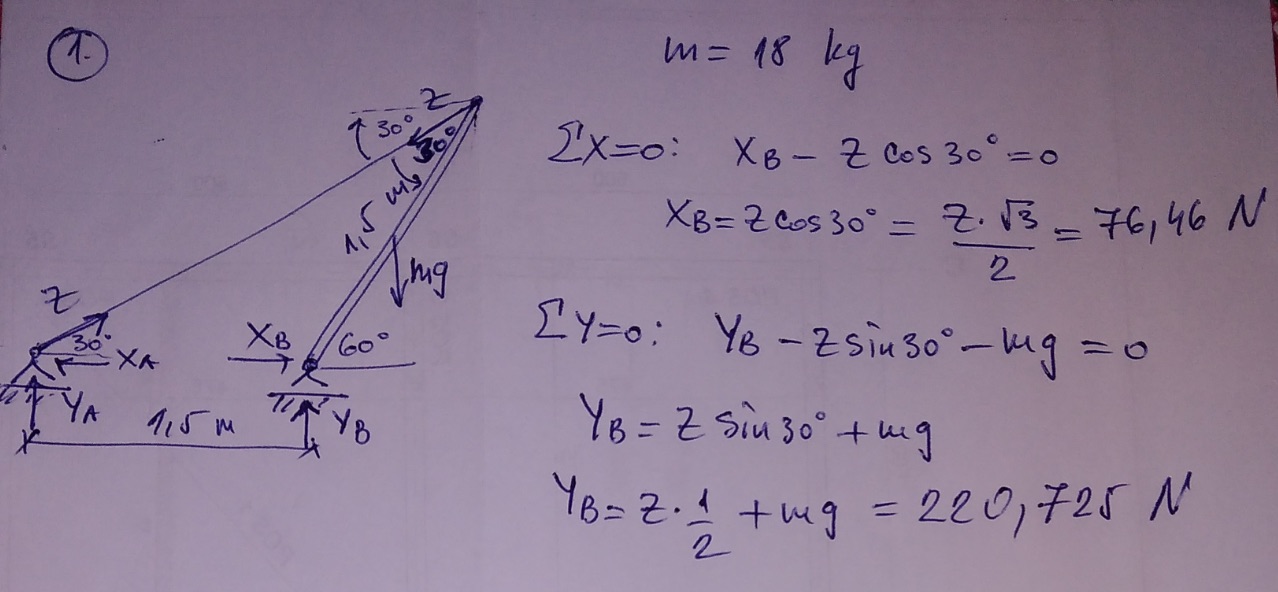 1.
m = 18 kg
Z
30°
30°
1,5 m
mg
Z
30°
XA
YA
XB
60°
YB
1,5 m
ΣX=0: XB - Z cos 30° = 0
XB = Z cos 30° = Z·√3/2 = 76,46 N
ΣY=0: YB - Z sin 30° - mg = 0
YB = Z sin 30° + mg
YB = Z·1/2 + mg = 220,725 N